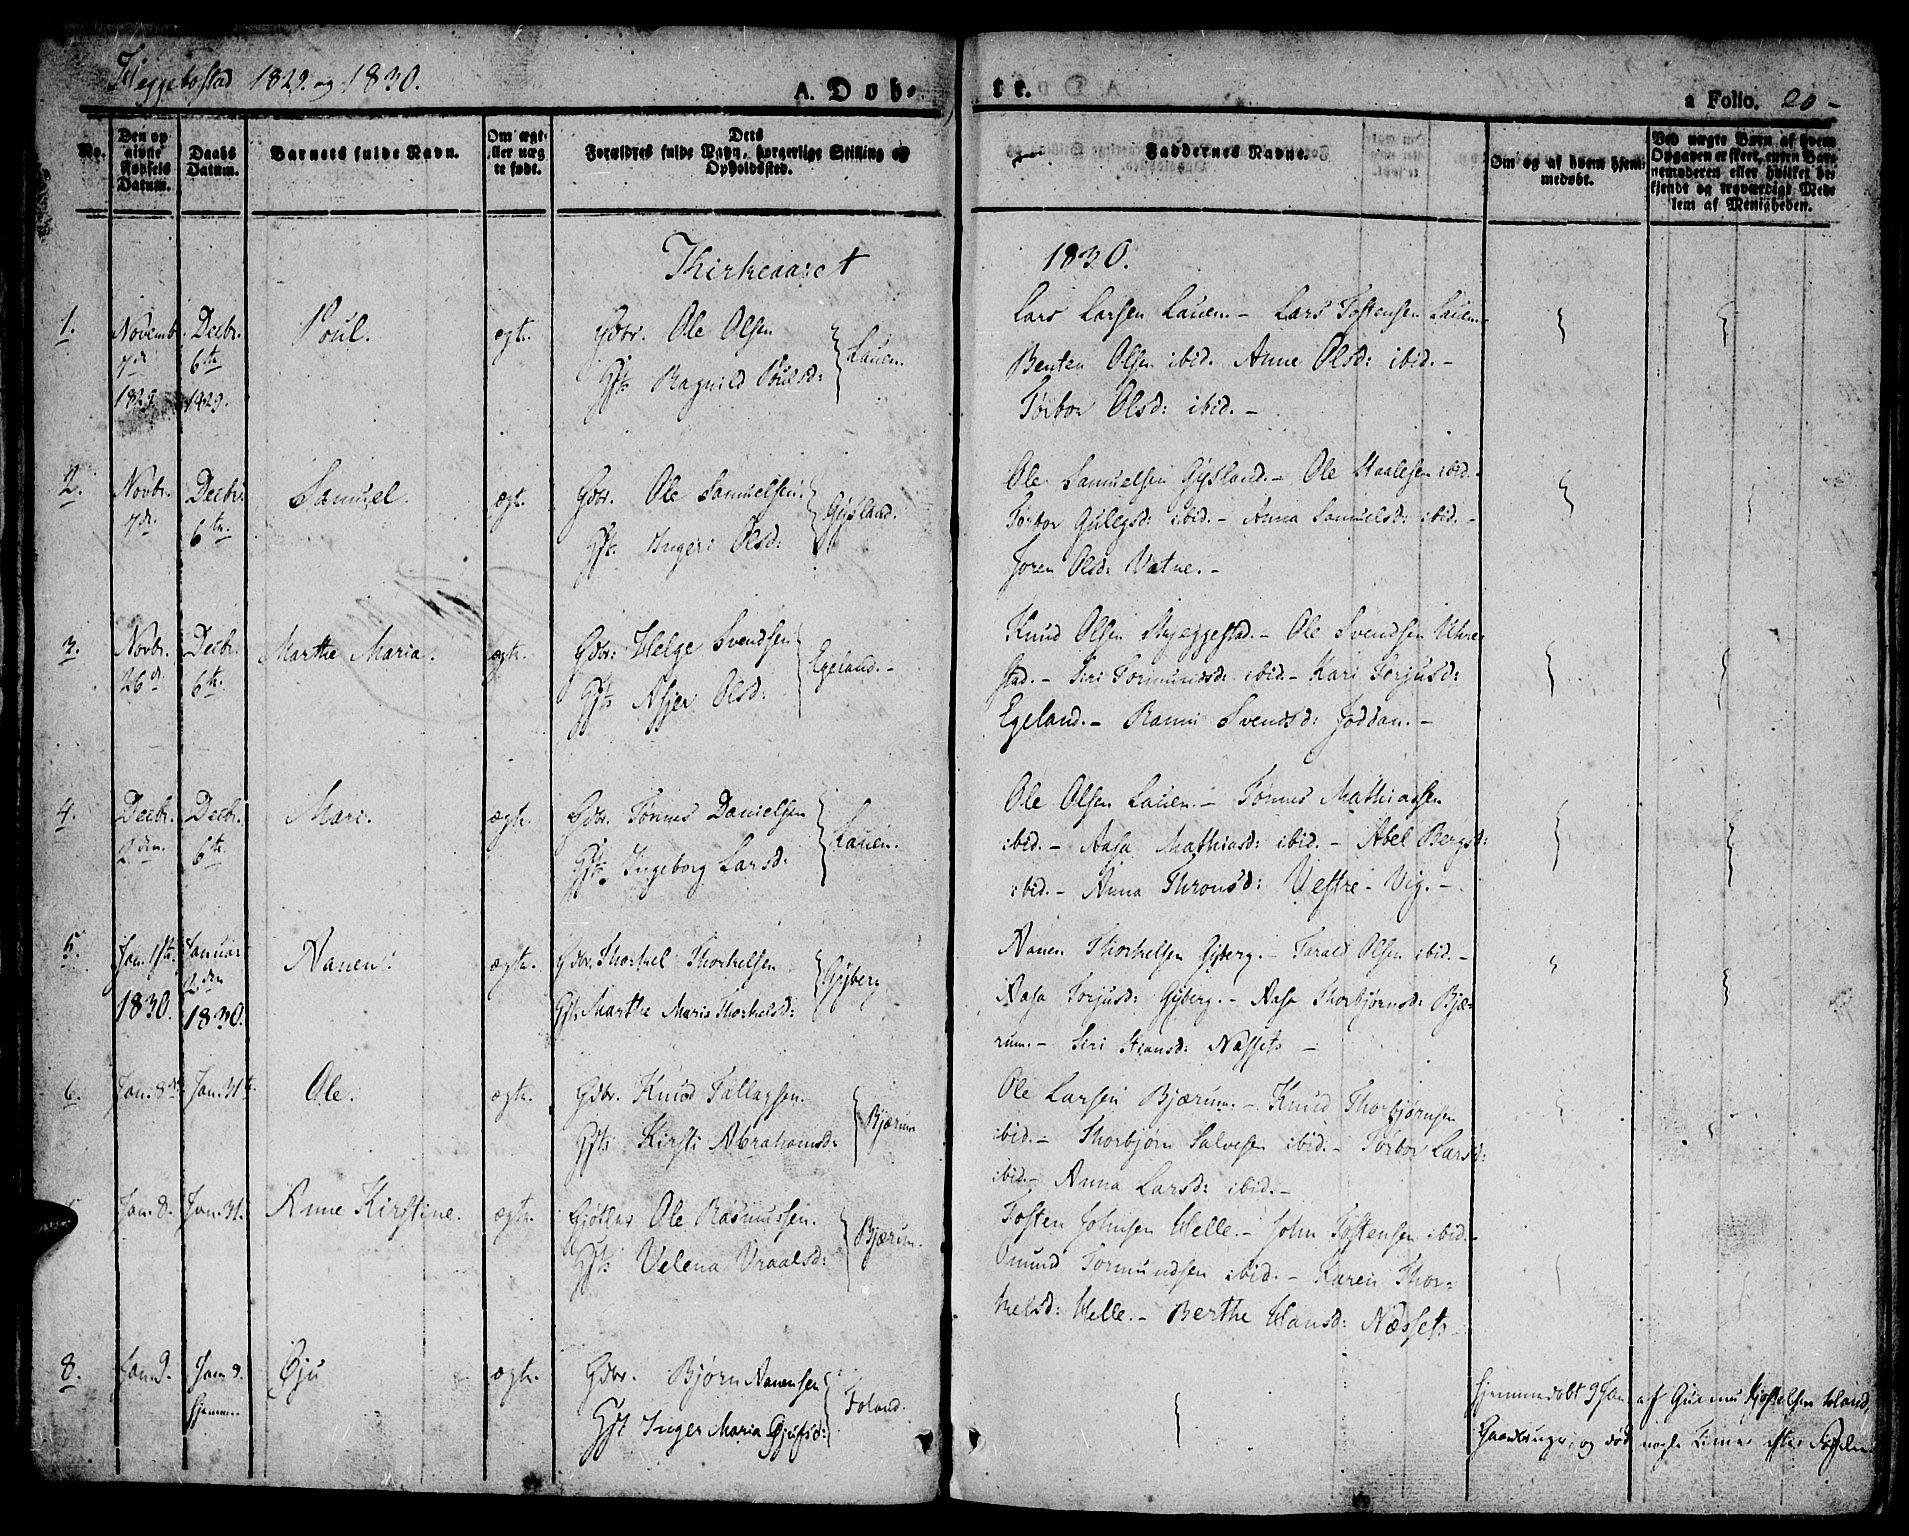 Heggebostad 1829. og 1830.
A. Døb-
te.
a Folio. 20-
No.
Den opgivne Fødsels Datum.
Daabs Datum.
Barnets fulde Navn.
Om ægte eller uægte født.
Dets Forældres fulde Navn, borgerlige Stilling og Opholdssted.
Faddernes Navne.
Om og af hvem hjemmedøbt.
Ved uægte Børn af hvem Opgaven er skeet, enten Barnemoderen eller hvilket bekjendt og troværdigt Medlem af Menigheden.
Khirkeaaret 1830.
1.
Novembr. 7de 1829.
Decbr. 6te 1829.
Poul.
ægte.
Gdbr. Ole Olsen
Gft. Ragnild Poulsd:
Lauen.
Lars Larsen Lauen.- Lars Tostensen Lauen-
Benten Olsen ibid. Anne Olsd: ibid.-
Torbor Olsd: ibid.-
2.
Novbr. 7de
Decbr. 6te.
Samuel.
ægt.
Gdbr. Ole Samuelsen.
Gft. Ingeri Olsd:
Gysland.
Ole Samuelsen Gysland.- Ole Staalesen ibid.-
Torbor Gulegsd: ibid.- Anna Samuelsd: ibid.-
Joren Olsd: Vatne.-
3.
Novbr. 26d
Decbr. 6te.
Marthe Maria.
ægte.
Gdbr: Helge Svendsen
Gft. Asjer Olsd:
Egeland.-
Knud Olsen Byeggestad.- Ole Svendsen Uhre-
stad.- Siri Tormundsd: ibid.- Kari Terjusd:
Egeland.- Ranni Svendsd: Joddan.-
4.
Decbr. 2den.
Decbr. 6te
Mari.
ægte.
Gdbr. Tønnes Danielsen
Gft. Ingeborg Larsd:
Lauen.
Ole Olsen Lauen.- Tønnes Mathiassen
ibid.- Aasa Mathiasd: ibid.- Abel Bergsd:
ibid.- Anna Thronsd: Vestre-Vig.-
5.
Jan. 1ste. 1830.
Januar 2den 1830.
Aanen.
ægte.
Gdbr. Thorkel Thorkelsen
Gft. Marthe Maria Thorkelsd:
Gyberg
Aanen Thorkelsen Gyberg.- Tarald Olsen ibid.-
Aasa Torjusd: Gyberg.- Aasa Thorbjørnsd: Bjæ-
rum.- Siri Stiansd: Næssets-
6.
Jan. 8de
Jan. 31te.
Ole.
ægte.
Gdbr. Knud Tallagsen.
Gft. Kirsti Abrahamsd:
Bjærum
Ole Larsen Bjærum.- Knud Thorbjørnsen
ibid.- Thorbjørn Salvesen ibid.- Torbor Larsd:
ibid.- Anna Larsd: ibid.-
Jan. 8.
Jan. 31.
Anne Kirstine.
ægte.
Ole Rasmussen.
Gft. Velena Vraalsd:
Bjærum.
Tosten Johnsen Helle.- John Tostensen ibid.-
Omund Tormundsen ibid.- Karen Thor-
kelsd: Helle.- Berthe Hansd: Næssets-
8.
Jan. 9.
Jan 9. hjemme
Gju
ægte.
Gdbr. Bjørn Aanensen
Gft Inger Maria
Foland.
hjemmedøbt 9 Jan af Gunnu
og død nogle Timer efter